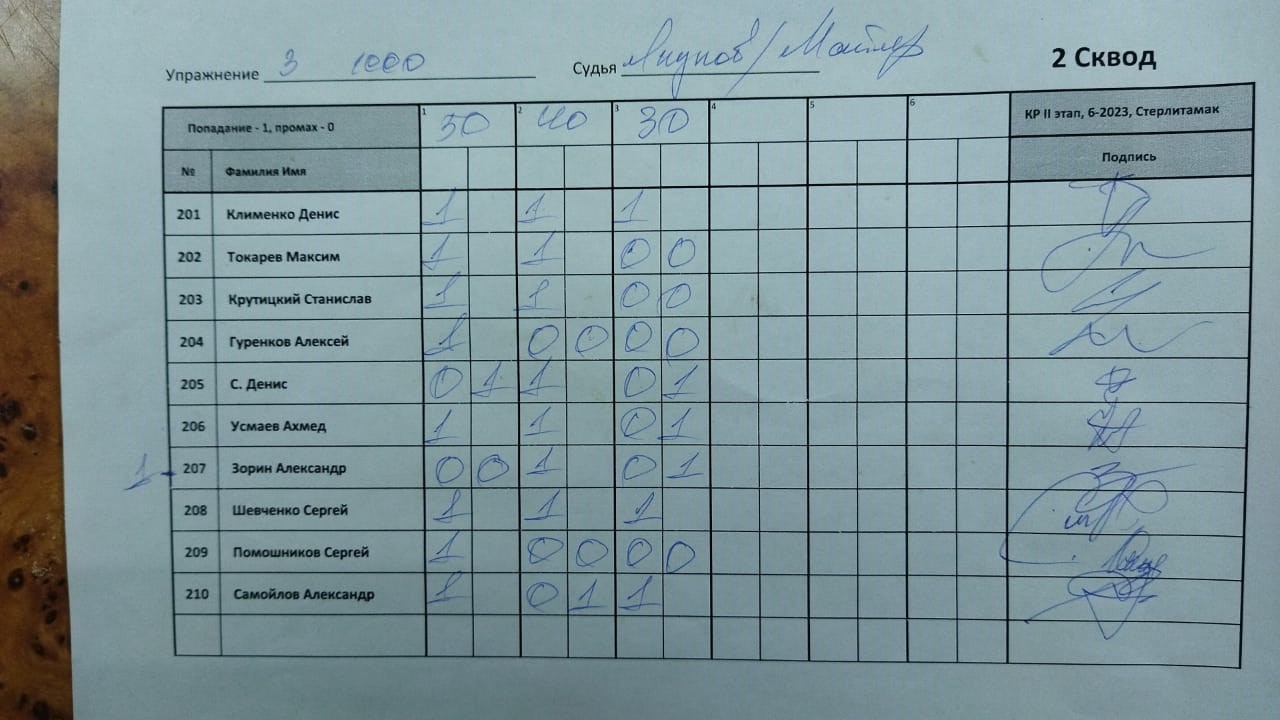 Упражнение 3 1000 Судья Якупов / Майер 2 Сквод
Попадание - 1, промах - 0 1 50 2 40 3 30 4 5 6 КР II этап, 6-2023, Стерлитамак
№ Фамилия Имя Подпись
201 Клименко Денис 1 1 1
202 Токарев Максим 1 1 0 0
203 Крутицкий Станислав 1 1 0 0
204 Гуренков Алексей 1 0 0 0 0
205 С. Денис 0 1 1 0 1
206 Усмаев Ахмед 1 1 0 1
1 - 207 Зорин Александр 0 0 1 0 1
208 Шевченко Сергей 1 1 1
209 Помошников Сергей 1 0 0 0 0
210 Самойлов Александр 1 0 1 1